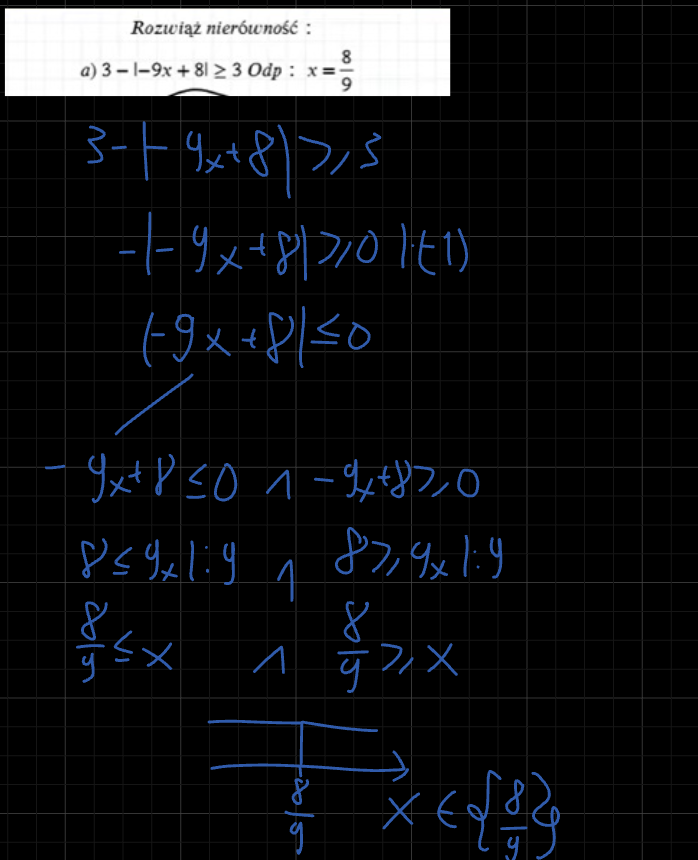 Rozwiąż nierówność :
a) 3 − |−9x + 8| ≥ 3 Odp : x = 8/9
3-|-9x+8| ≥ 3
-|-9x+8| ≥ 0 |·(-1)
|-9x+8| ≤ 0
-9x+8 ≤ 0 ∧ -9x+8 ≥ 0
8 ≤ 9x |:9 ∧ 8 ≥ 9x |:9
8/9 ≤ x ∧ 8/9 ≥ x
8/9 x ∈ {8/9}